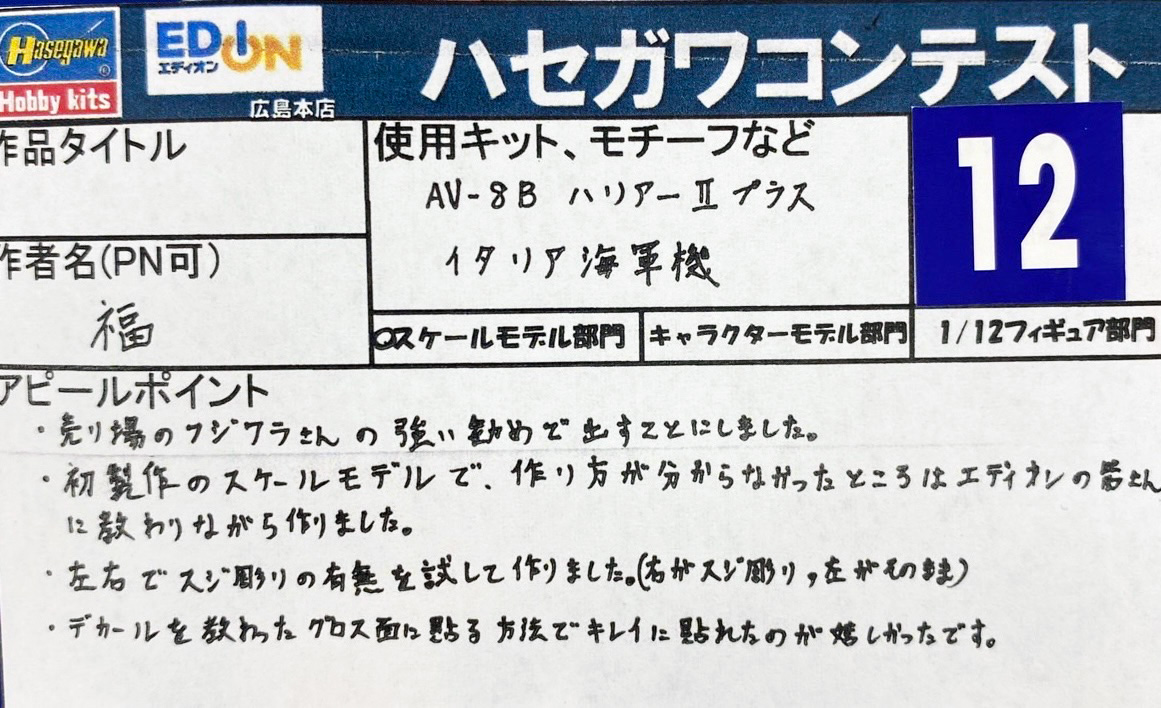 Hasegawa
Hobby kits
EDION
エディオン
広島本店
ハセガワコンテスト
作品タイトル
使用キット、モチーフなど
AV-8B ハリアーⅡプラス
イタリア海軍機
12
作者名(PN可)
福
○スケールモデル部門
キャラクターモデル部門
1/12フィギュア部門
アピールポイント
・売り場のフジワラさんの強い勧めで出すことにしました。
・初製作のスケールモデルで、作り方が分からなかったところはエディオンの皆さん
に教わりながら作りました。
・左右でスジ彫りの有無を試して作りました。(右がスジ彫り,左がそのまま)
・デカールを教わったグロス面に貼る方法でキレイに貼れたのが嬉しかったです。